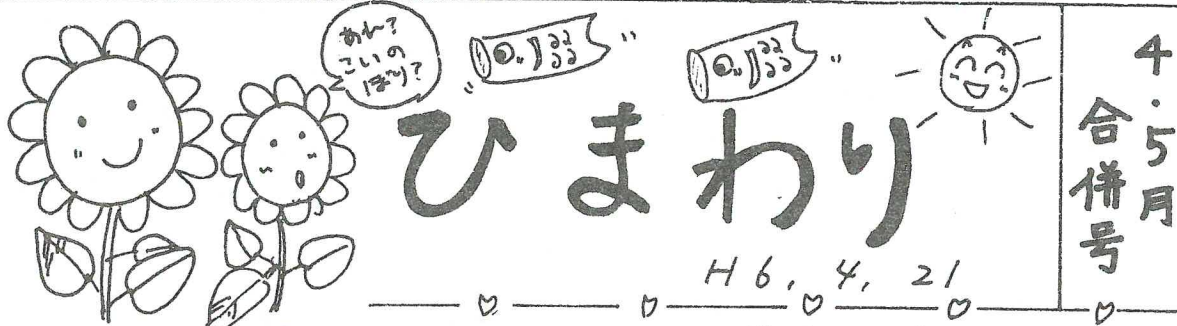 あれ?
こいの
ぼり?
ひまわり
H6.4.21
4・5月
合併号